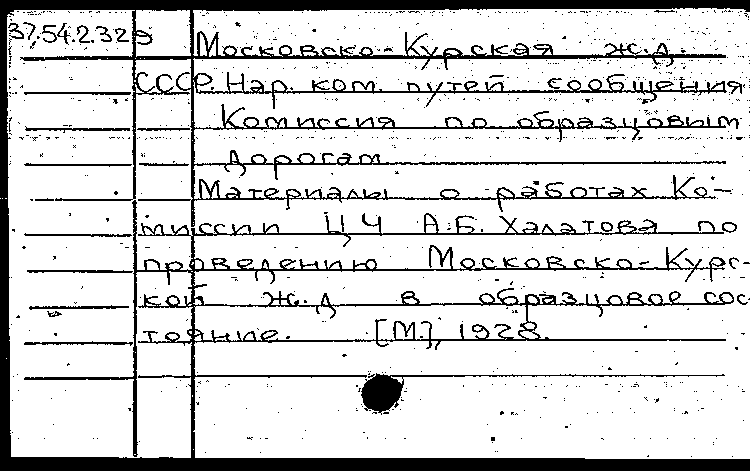 37.54.2.329
Московско-Курская ж.д.
СССР. Нар. ком. путей сообщения
Комиссия по образцовым
дорогам
Материалы о работах Ко-
миссии ЦЧ А.Б. Халатова по
проведению Московско-Курс-
кой ж.д в образцовое сос
тояние. [М.], 1928.